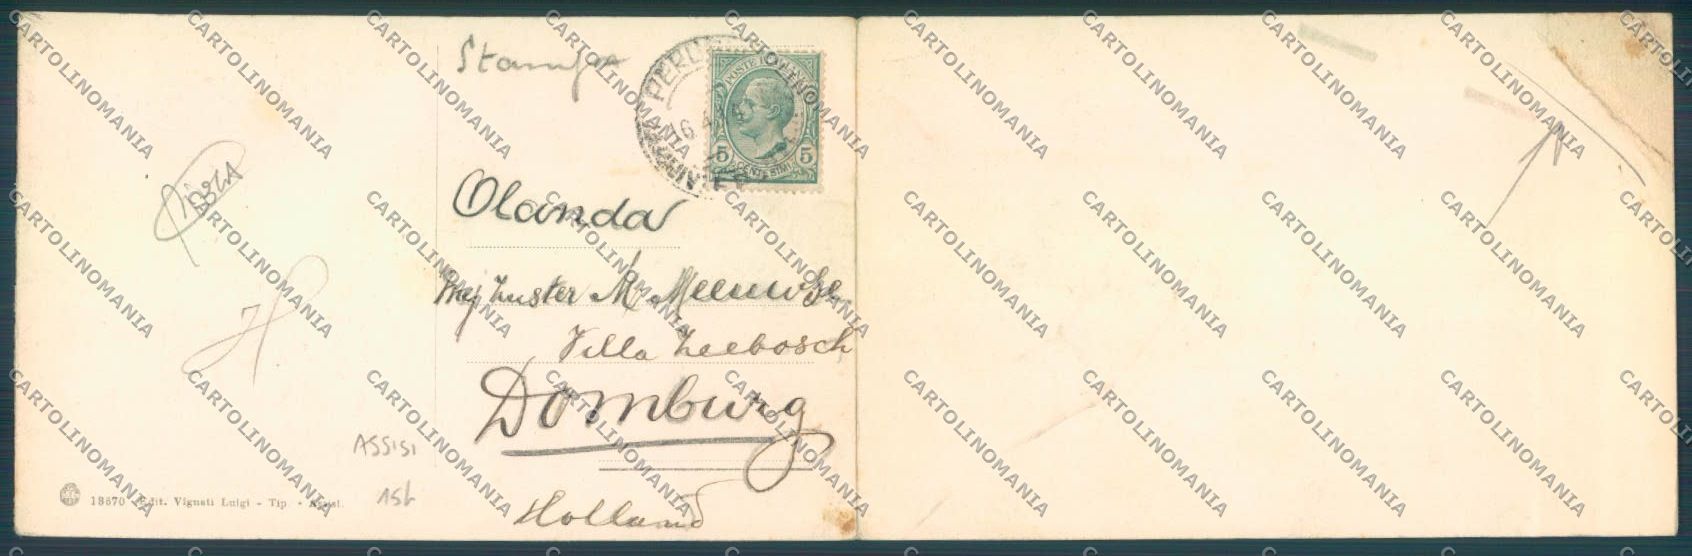 Stampe
POSTE ITALIANE
5
5
CENTESIMI
16.4
Olanda
Mej Zuster M. Meeuwse
Villa Zeebosch
Domburg
Holland
ASSISI
15h
18570 - Edit. Vignati Luigi - Tip. - Assisi.
CARTOLINOMANIA